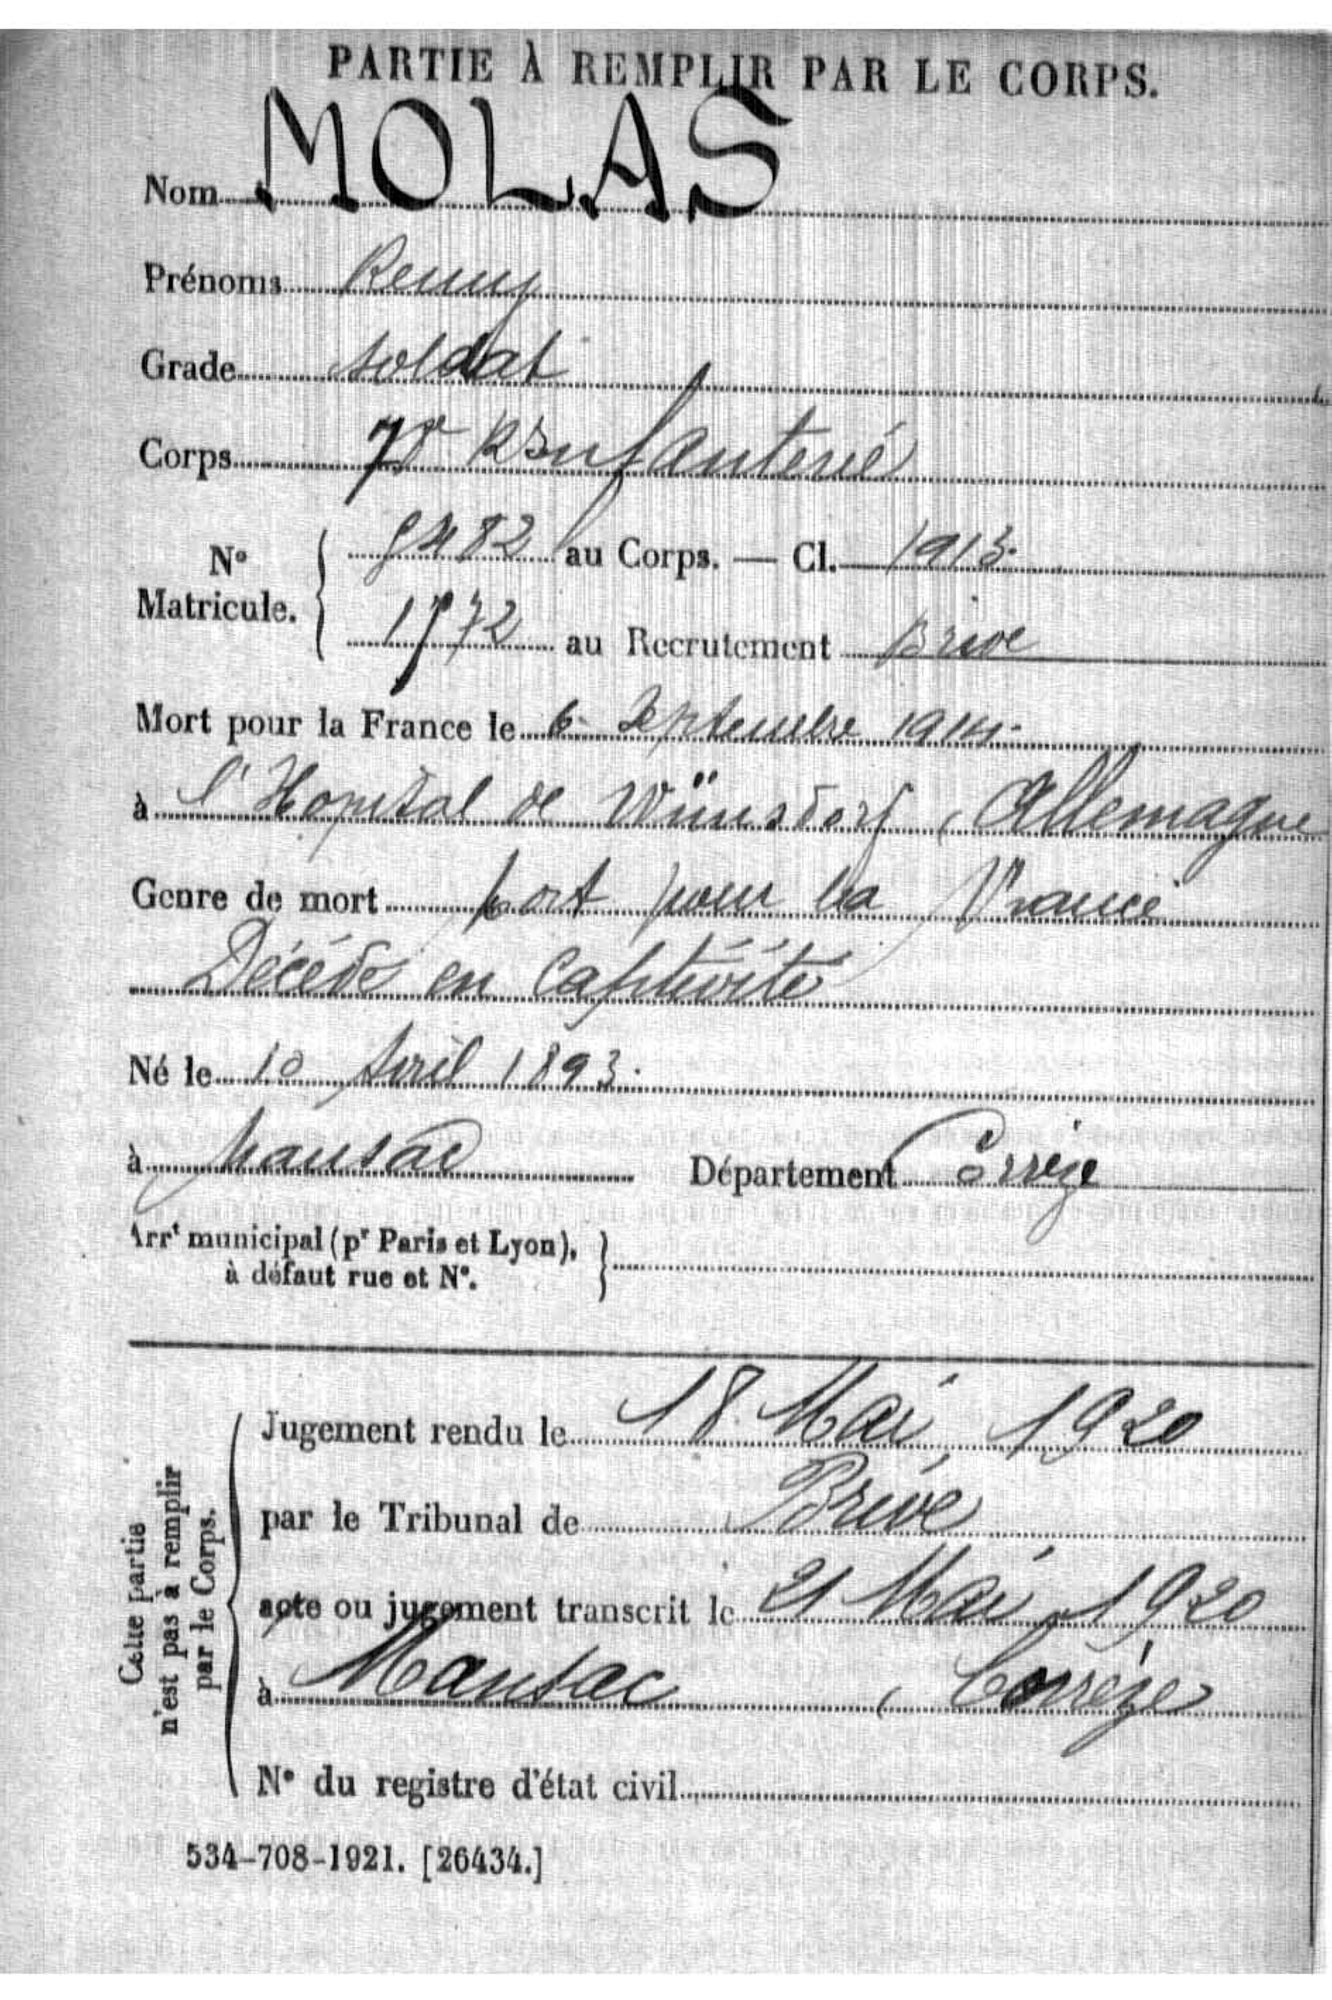 PARTIE À REMPLIR PAR LE CORPS.
Nom MOLAS
Prénoms Remy
Grade soldat
Corps Infanterie
N° Matricule. 9482 au Corps. — Cl. 1913.
1772 au Recrutement Brive
Mort pour la France le 6 Septembre 1914.
à l'Hopital de Wünsdorf, Allemagne
Genre de mort Mort pour la France
Décédé en Captivité
Né le 10 Avril 1893.
à Mansac Département Corrèze
Arrt municipal (pr Paris et Lyon),
à défaut rue et N°.
Cette partie
n'est pas à remplir
par le Corps.
Jugement rendu le 18 Mai 1920
par le Tribunal de Brive
acte ou jugement transcrit le 21 Mai 1920
à Mansac, Corrèze
N° du registre d'état civil
534-708-1921. [26434.]